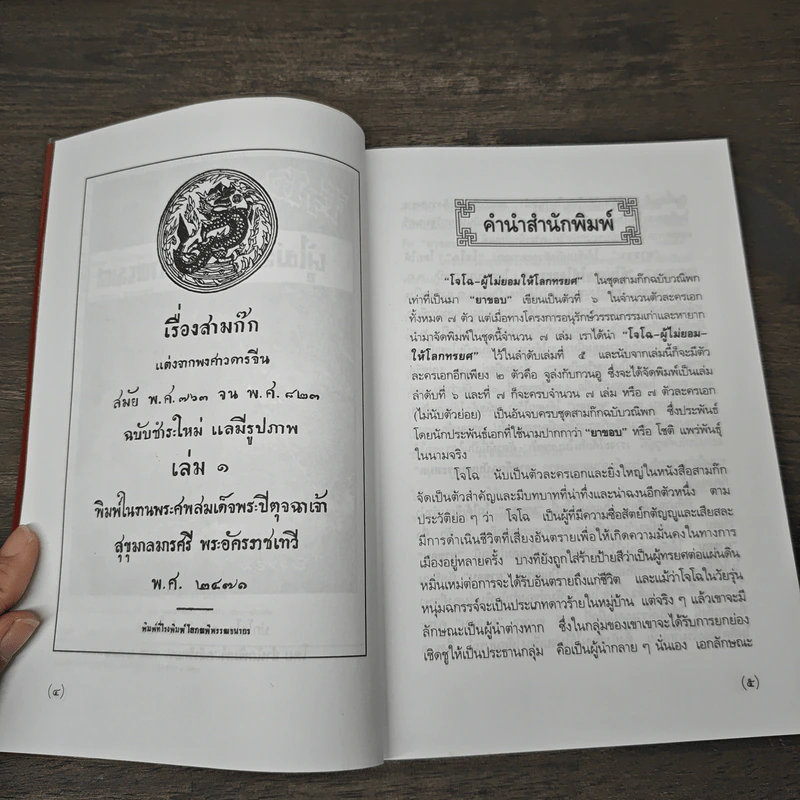 เรื่องสามก๊ก
แต่งจากพงศาวดารจีน
สมัย พ.ศ.๗๖๓ จน พ.ศ.๘๒๓
ฉบับชำระใหม่ แลมีรูปภาพ
เล่ม ๑
พิมพ์ในงานพระศพสมเด็จพระปิตุจฉาเจ้า
สุขุมาลมารศรี พระอัครราชเทวี
พ.ศ. ๒๔๗๑
พิมพ์ที่โรงพิมพ์โสภณพิพรรฒธนากร
(๔)
คำนำสำนักพิมพ์
"โจโฉ-ผู้ไม่ยอมให้โลกทรยศ" ในชุดสามก๊กฉบับวณิพก
เท่าที่เป็นมา "ยาขอบ" เขียนเป็นตัวที่ ๖ ในจำนวนตัวละครเอก
ทั้งหมด ๗ ตัว แต่เมื่อทางโครงการอนุรักษ์วรรณกรรมเก่าและหายาก
นำมาจัดพิมพ์ในชุดนี้จำนวน ๗ เล่ม เราได้นำ "โจโฉ-ผู้ไม่ยอม-
ให้โลกทรยศ" ไว้ในลำดับเล่มที่ ๕ และนับจากเล่มนี้ก็จะมีตัว
ละครเอกอีกเพียง ๒ ตัวคือ จูล่งกับกวนอู ซึ่งจะได้จัดพิมพ์เป็นเล่ม
ลำดับที่ ๖ และที่ ๗ ก็จะครบจำนวน ๗ เล่ม หรือ ๗ ตัวละครเอก
(ไม่นับตัวย่อย) เป็นอันจบครบชุดสามก๊กฉบับวณิพก ซึ่งประพันธ์
โดยนักประพันธ์เอกที่ใช้นามปากกาว่า "ยาขอบ" หรือ โชติ แพร่พันธุ์
ในนามจริง
โจโฉ นับเป็นตัวละครเอกและยิ่งใหญ่ในหนังสือสามก๊ก
จัดเป็นตัวสำคัญและมีบทบาทที่น่าทึ่งและน่าฉงนอีกตัวหนึ่ง ตาม
ประวัติย่อ ๆ ว่า โจโฉ เป็นผู้ที่มีความซื่อสัตย์กตัญญูและเสียสละ
มีการดำเนินชีวิตที่เสี่ยงอันตรายเพื่อให้เกิดความมั่นคงในทางการ
เมืองอยู่หลายครั้ง บางทียังถูกใส่ร้ายป้ายสีว่าเป็นผู้ทรยศต่อแผ่นดิน
หมิ่นเหม่ต่อการจะได้รับอันตรายถึงแก่ชีวิต และแม้ว่าโจโฉในวัยรุ่น
หนุ่มฉกรรจ์จะเป็นประเภทดาวร้ายในหมู่บ้าน แต่จริง ๆ แล้วเขาจะมี
ลักษณะเป็นผู้นำต่างหาก ซึ่งในกลุ่มของเขาเขาจะได้รับการยกย่อง
เชิดชูให้เป็นประธานกลุ่ม คือเป็นผู้นำกลาย ๆ นั่นเอง เอกลักษณะ
(๕)